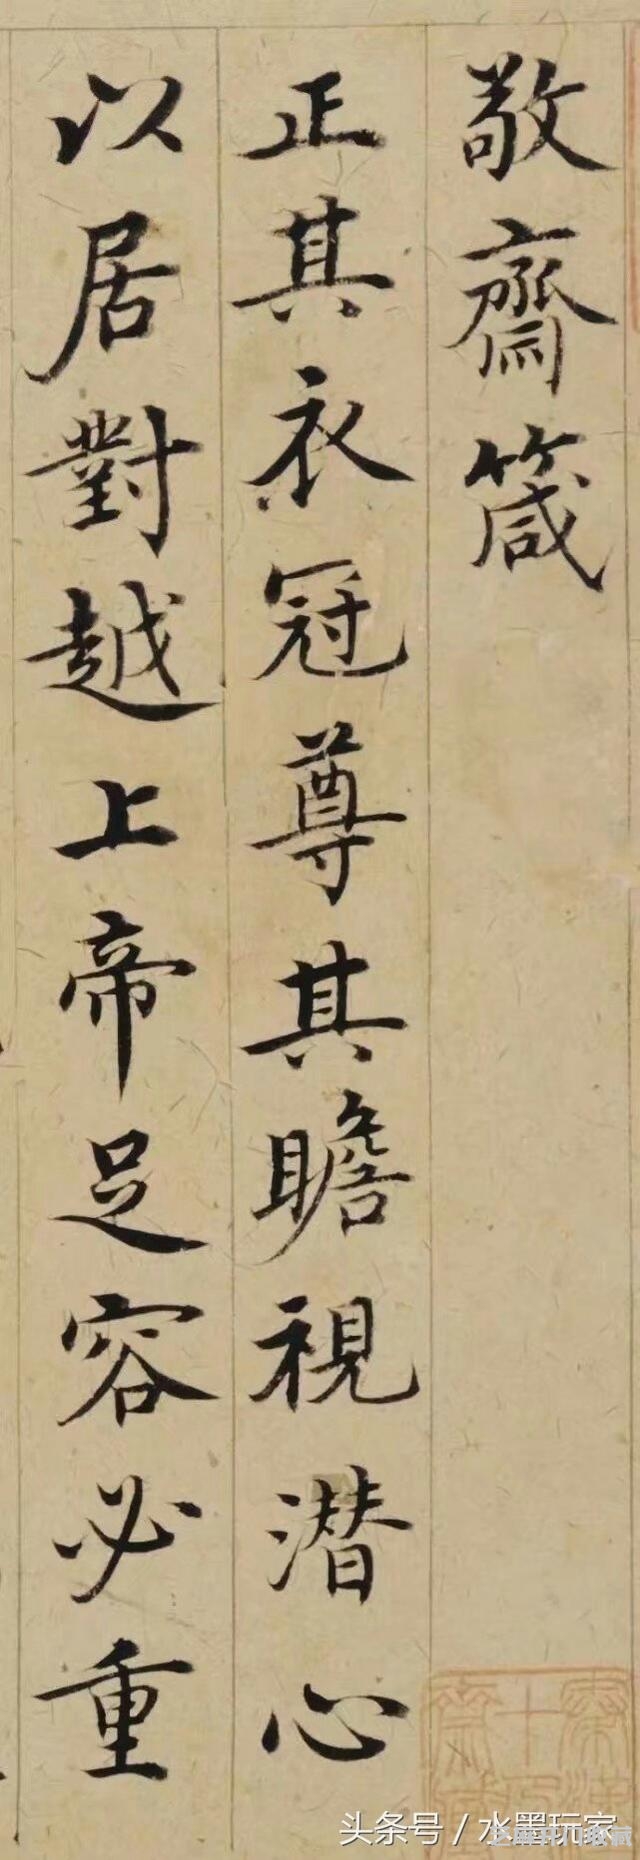 敬齋箴
正其衣冠尊其瞻視潜心
以居對越上帝足容必重
头条号/水墨玩家